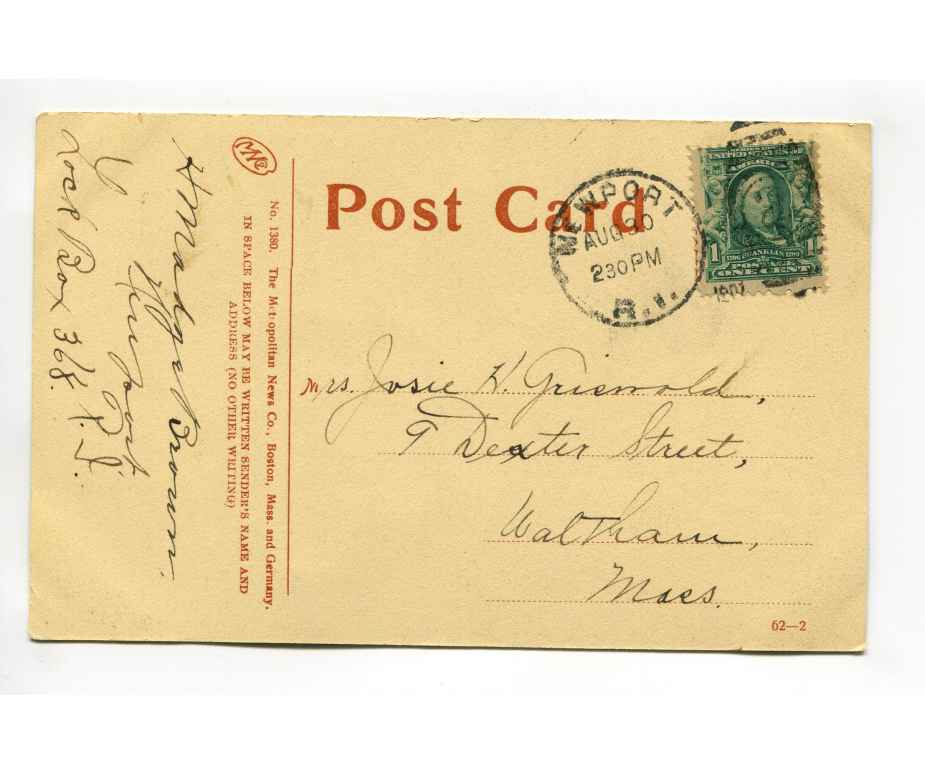 Post Card
NEWPORT
AUG 30
2 30 PM
R.I.
1907
SERIES OF 1902
UNITED STATES OF
AMERICA
1706 FRANKLIN 1790
1 POSTAGE 1
ONE CENT
Mrs. Josie K. Griswold,
9 Dexter Street,
Waltham,
Mass.
62—2
No. 1380. The Metropolitan News Co., Boston, Mass. and Germany.
IN SPACE BELOW MAY BE WRITTEN SENDER'S NAME AND
ADDRESS (NO OTHER WRITING)
H Madge Brown.
Newport
Lock Box 368. R. I.